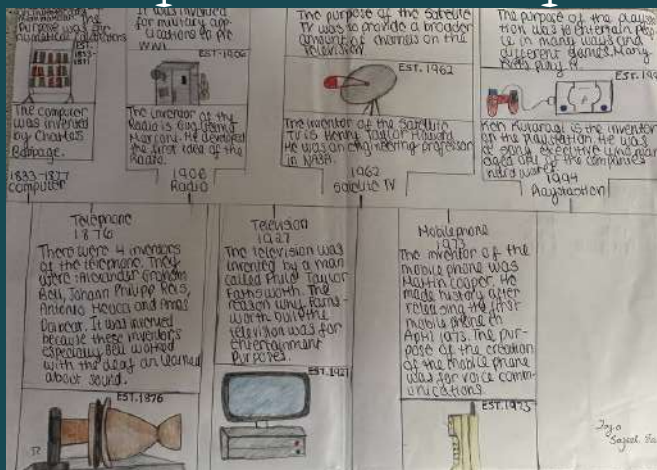 The
purpose was for
numatical calculations
EST.
1833-
1871
The computer
was invented
by Charles
Babbage.
1833-1871
computer
It was invented
for military app-
lications to pre
WW1
EST-1906
The inventor of the
Radio is Gugliemo
Marconi. He developed
the first idea of the
Radio.
1906
Radio
The purpose of the Satelute
TV was to provide a broader
amount of channels on the
television.
EST.1962
The inventor of the Satelute
TV is Henry Taylor Howard
He was an engineering professor
in NASA.
1962
Satelute TV
The purpose of the playsta-
tion was to entertain peop-
le in many ways and
different games. Many
kids play it.
EST.199
Ken Kutaragi is the inventor
of the playstation. He was
a sony executive who man-
aged one of the companies
hard ware.
1994
Playstaction
Telephone
1876
There were 4 inventors
of the telephone. They
were: Alexander Graham
Bell, Johann Philipp Reis,
Antonio Meucci and Amos
Dolbear. It was invented
because these inventors
especially Bell worked
with the deaf an learned
about sound.
EST.1876
Television
1927
The television was
invented by a man
called Philo Taylor
Farnsworth. The
reason why Farns-
worth built the
television was for
entertainment
purposes.
EST.1927
Mobilephone
1973
The inventor of the
mobile phone was
Martin Cooper. He
made history after
releasing the first
mobile phone in
April 1973. The pur-
pose of the creation
of the mobile phone
was for voice comm-
unications.
EST.1973